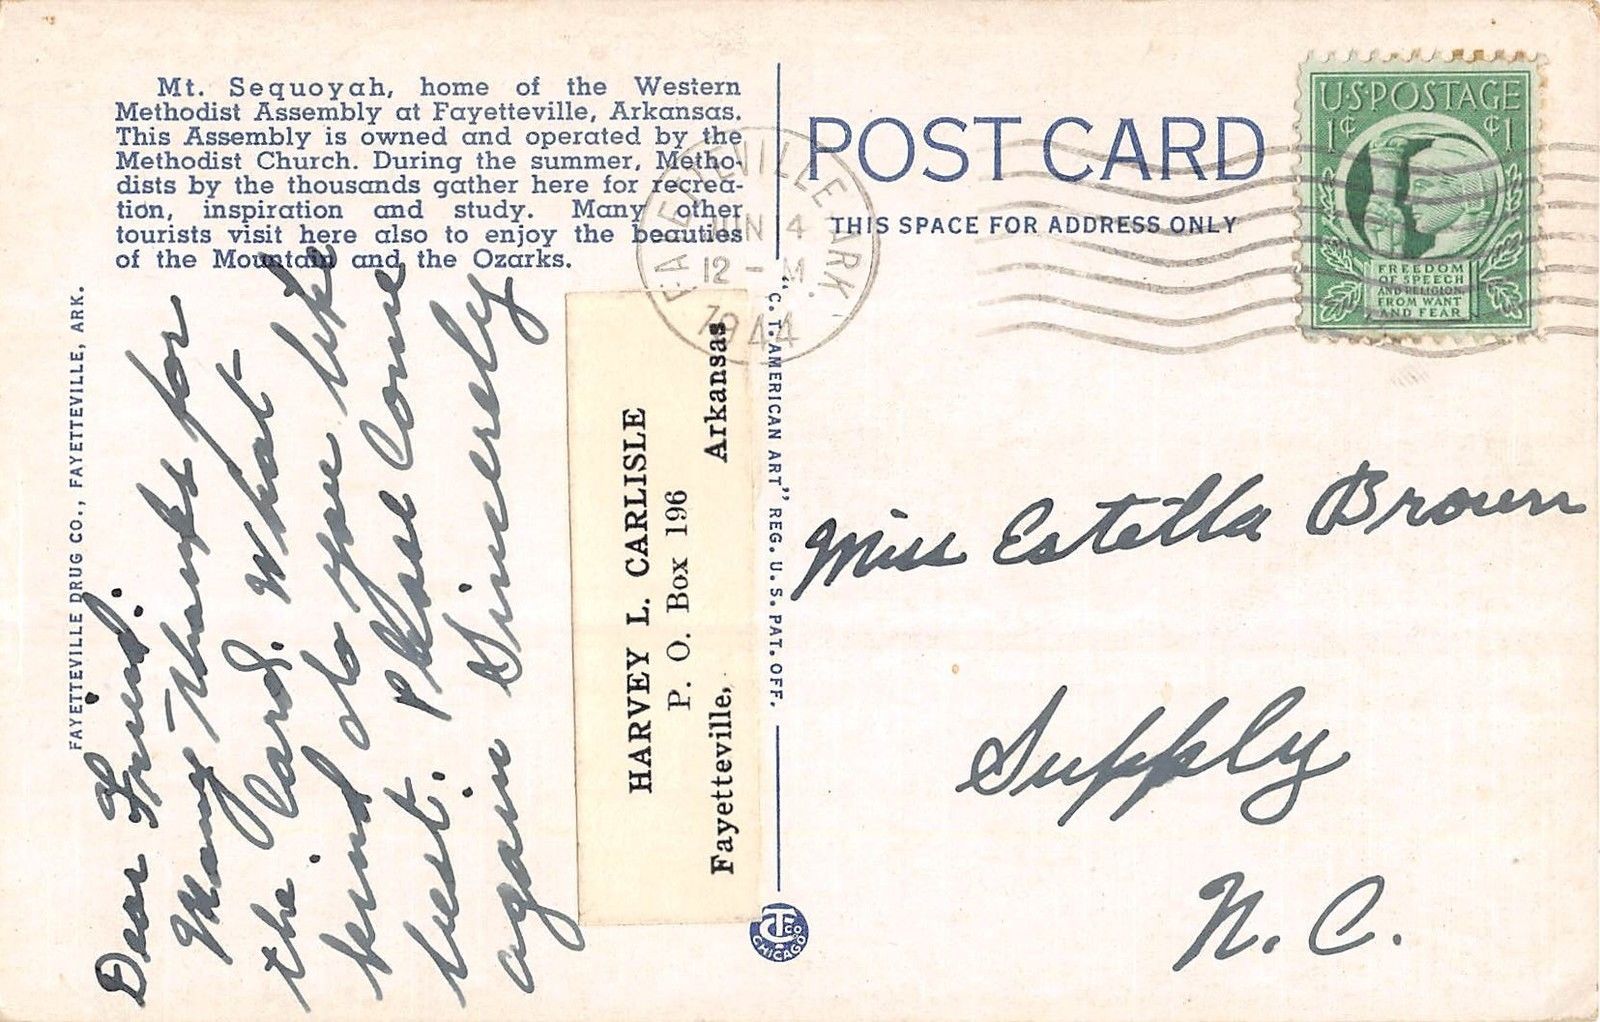 Mt. Sequoyah, home of the Western
Methodist Assembly at Fayetteville, Arkansas.
This Assembly is owned and operated by the
Methodist Church. During the summer, Metho-
dists by the thousands gather here for recrea-
tion, inspiration and study. Many other
tourists visit here also to enjoy the beauties
of the Mountain and the Ozarks.
FAYETTEVILLE DRUG CO., FAYETTEVILLE, ARK.
Dear Friend:
Many Thanks for
the Card. What
kind do you like
best. Please Come
again Sincerely
HARVEY L. CARLISLE
P. O. Box 196
Fayetteville, Arkansas
"C. T. AMERICAN ART" REG. U. S. PAT. OFF.
CT CO.
CHICAGO
POST CARD
THIS SPACE FOR ADDRESS ONLY
FAYETTEVILLE ARK.
JUN 4
12 - M
1944
U·S·POSTAGE
1¢ ¢1
FREEDOM
OF SPEECH
AND RELIGION
FROM WANT
AND FEAR
Miss Estella Brown
Supply
N. C.